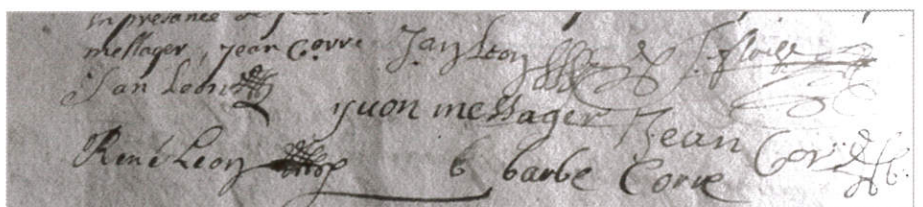 in presance de
messager, jean Corre Jan Leon
Jan Leon
yuon messager Jean Corre
René Leon b barbe Corre